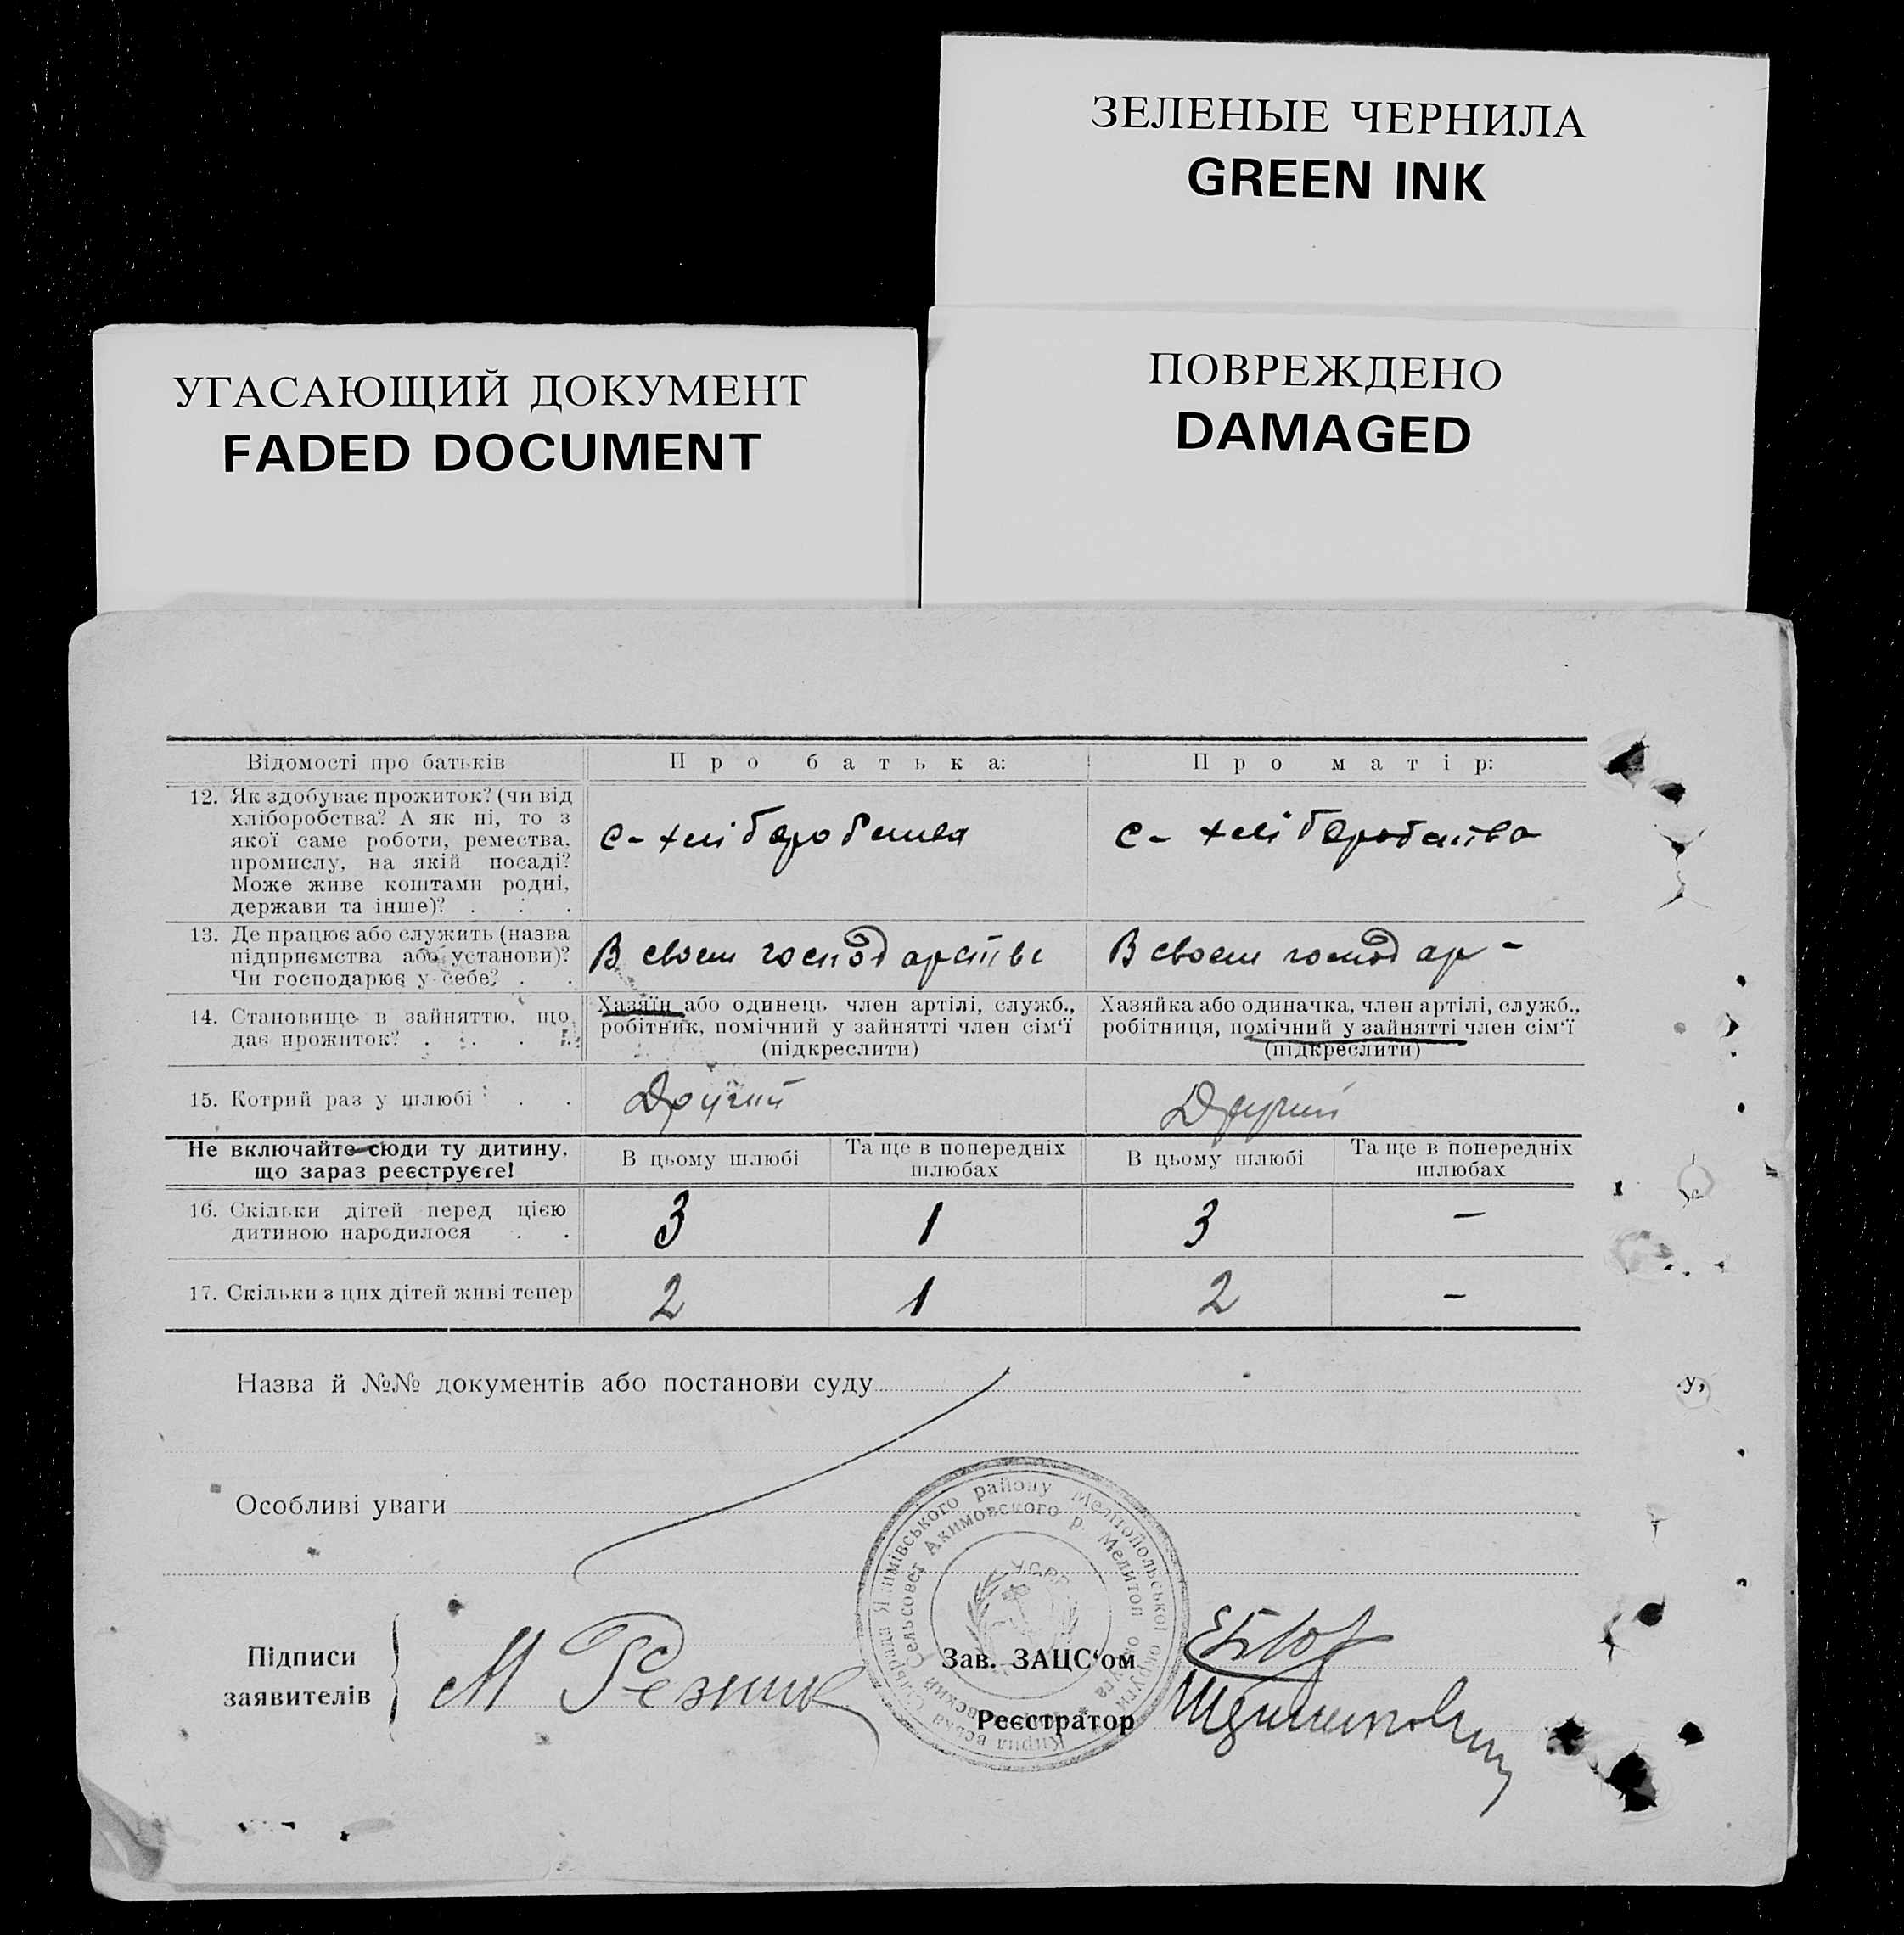 ЗЕЛЕНЫЕ ЧЕРНИЛА
GREEN INK
УГАСАЮЩИЙ ДОКУМЕНТ
FADED DOCUMENT
ПОВРЕЖДЕНО
DAMAGED
Відомості про батьків
Про батька:
Про матір:
12. Як здобуває прожиток? (чи від
хліборобства? А як ні, то з
якої саме роботи, ремества,
промислу, на якій посаді?
Може живе коштами родні,
держави та інше)? . . .
с-хліборобства
с- хліборобства
13. Де працює або служить (назва
підприємства або установи)?
Чи господарює у себе? . .
В своєм господарстві
В своєм господар-
14. Становище в зайняттю, що
дає прожиток? . . . .
Хазяїн або одинець член артілі, служб.,
робітник, помічний у зайнятті член сім'ї
(підкреслити)
Хазяйка або одиначка, член артілі, служб.,
робітниця, помічний у зайнятті член сім'ї
(підкреслити)
15. Котрий раз у шлюбі . .
Другий
Другий
Не включайте сюди ту дитину,
що зараз реєструєте!
В цьому шлюбі
Та ще в попередніх
шлюбах
В цьому шлюбі
Та ще в попередніх
шлюбах
16. Скільки дітей перед цією
дитиною народилося . .
3
1
3
–
17. Скільки з цих дітей живі тепер
2
1
2
–
Назва й №№ документів або постанови суду
у,
Особливі уваги
Якимівського району Мелітопольської округи
Сельсовет Акимовского р. Мелитоп округа
УСРР
Підписи
заявителів
М Резник
Зав. ЗАЦС'ом
Реєстратор